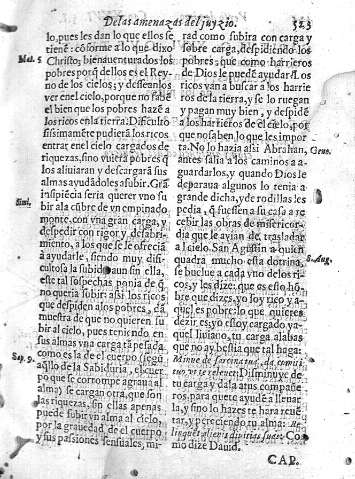 De las amenazas del juyzio. 525
lo, pues les dan lo que ellos se
tiene: cõforme a lo que dixo
Mat. 5 Christo; bienauenturados los
pobres porq̃ dellos es el Rey-
no de los cielos; y dessean los
ver en el cielo, porque no sabẽ
el bien que los pobres hazẽ a
los ricos en la tierra. Dificulto
sissimamẽte pudierã los ricos
entrar en el cielo cargados de
riquezas, sino vuiera pobres q̃
los aliuiaran y descargarã sus
almas ayudãdoles a subir. Grã
insipiẽcia seria querer vno su-
Simi. bir a la cũbre de vn empinado
monte, con vna gran carga, y
despedir con rigor y desabri-
miento, a los que se le ofreciã
a ayudarle, siendo muy difi-
cultosa la subida aun sin ella,
este tal sospechas ponia de q̃
no queria subir: assi los ricos
que despiden a los pobres, dã
muestra de que no quieren su-
bir al cielo, pues teniendo en
sus almas vna carga tã pesada
como es la de el cuerpo (segũ
Sap. 9. aq̃llo de la Sabiduria, el cuer-
po que se corrompe agraua al
alma) se cargan otra, que son
las riquezas, sin ellas apenas
puede subir vn alma al cielo,
por la grauedad, de el cuerpo
y sus passiones sensuales, mi-
rad como subira con carga y
sobre carga, despidiendo los
pobres; que como harrieros
de Dios le puedẽ ayudar! Los
ricos van a buscar a los harrie
ros de la tierra, y se lo ruegan
y pagan muy bien, y despidẽ
a los harrieros de el cielo, por
que no saben lo que les impor
ta. No lo hazia assi Abrahan, Genes.
antes salia a los caminos a a-
guardarlos, y quando Dios le
deparaua algunos lo tenia a
grande dicha, y de rodillas les
pedia, q̃ fuessen a su casa a re
cebir las obras de misericor-
dia que le auian de trasladar
al cielo. San Agustin a quiẽ
quadra mucho esta dotrina, S. Aug.
se buelue a cada vno de los ri-
cos, y les dize: que es esso hõ-
bre que dizes, yo soy rico y a-
quel es pobre: lo que quieres
dezir, es; yo estoy cargado ya-
quel liuiano, tu carga alabas
que no ay bestia que tal haga:
Disminuye de
tu carga y dala a tus compañe
ros, para que te ayudẽ a lleuar
la, y sino lo hazes te hara reuẽ
tar, y pereciendo tu alma: Re-
linques alienis diuitias suas: Co
mo dize Dauid.
CAP.